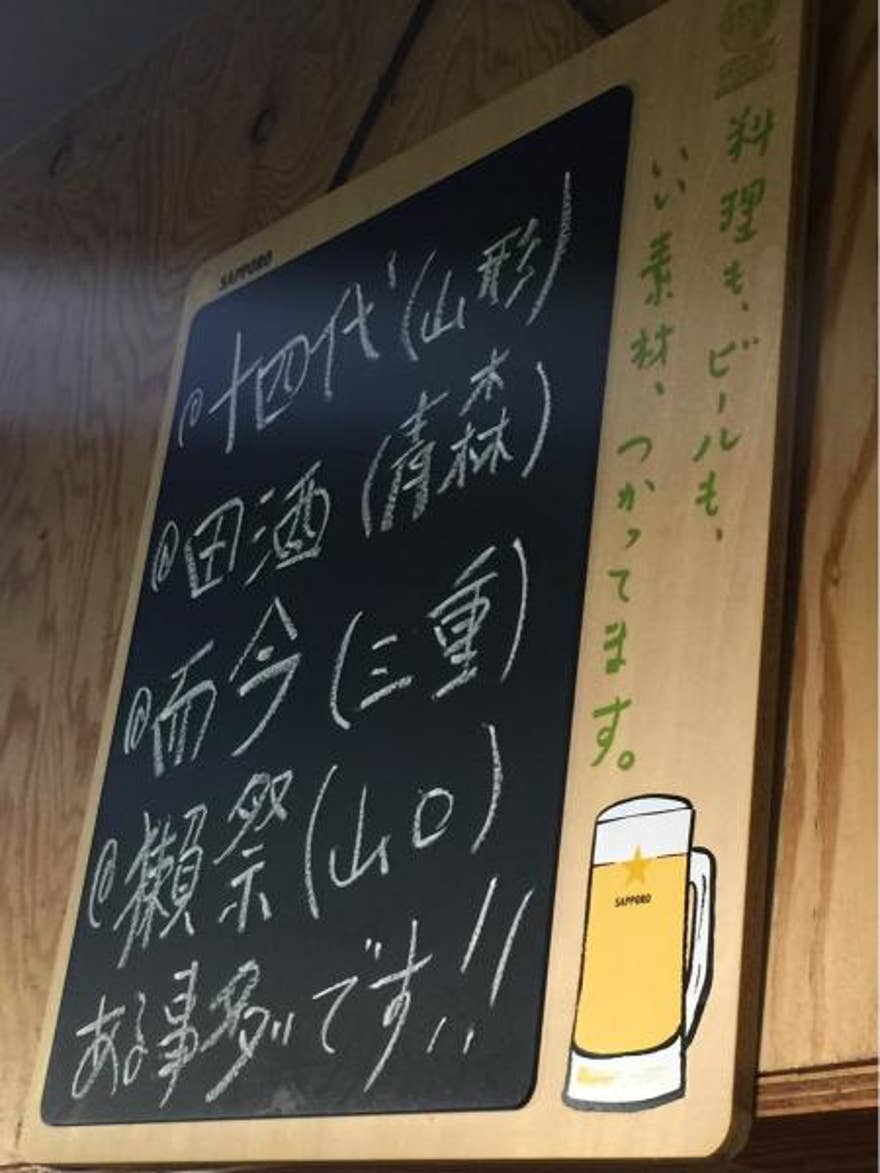 SAPPORO
@十四代(山形)
@田酒(青森)
@而今(三重)
@獺祭(山口)
ある事多いです!!
料理も、ビールも、
いい素材、つかってます。
SAPPORO